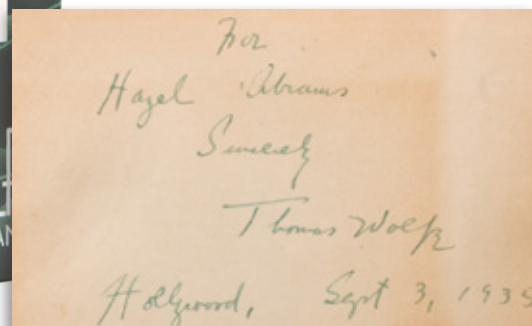 For
Hazel Abrams
Sincerely
Thomas Wolfe
Hollywood, Sept 3, 1935